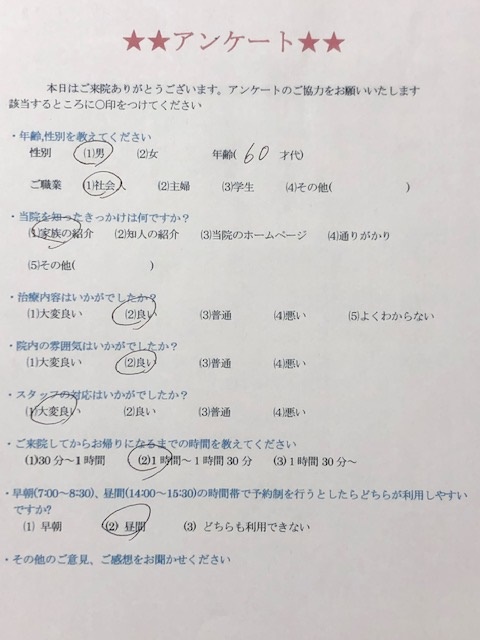 ★★アンケート★★
本日はご来院ありがとうございます。アンケートのご協力をお願いいたします
該当するところに〇印をつけてください
・年齢,性別を教えてください
性別 (1)男 (2)女 年齢( 60 才代)
ご職業 (1)社会人 (2)主婦 (3)学生 (4)その他( )
・当院を知ったきっかけは何ですか？
(1)家族の紹介 (2)知人の紹介 (3)当院のホームページ (4)通りがかり
(5)その他( )
・治療内容はいかがでしたか？
(1)大変良い (2)良い (3)普通 (4)悪い (5)よくわからない
・院内の雰囲気はいかがでしたか？
(1)大変良い (2)良い (3)普通 (4)悪い
・スタッフの対応はいかがでしたか？
(1)大変良い (2)良い (3)普通 (4)悪い
・ご来院してからお帰りになるまでの時間を教えてください
(1)30分～1時間 (2)1時間～1時間30分 (3)1時間30分～
・早朝(7:00～8:30)、昼間(14:00～15:30)の時間帯で予約制を行うとしたらどちらが利用しやすい
ですか?
(1) 早朝 (2) 昼間 (3) どちらも利用できない
・その他のご意見、ご感想をお聞かせください